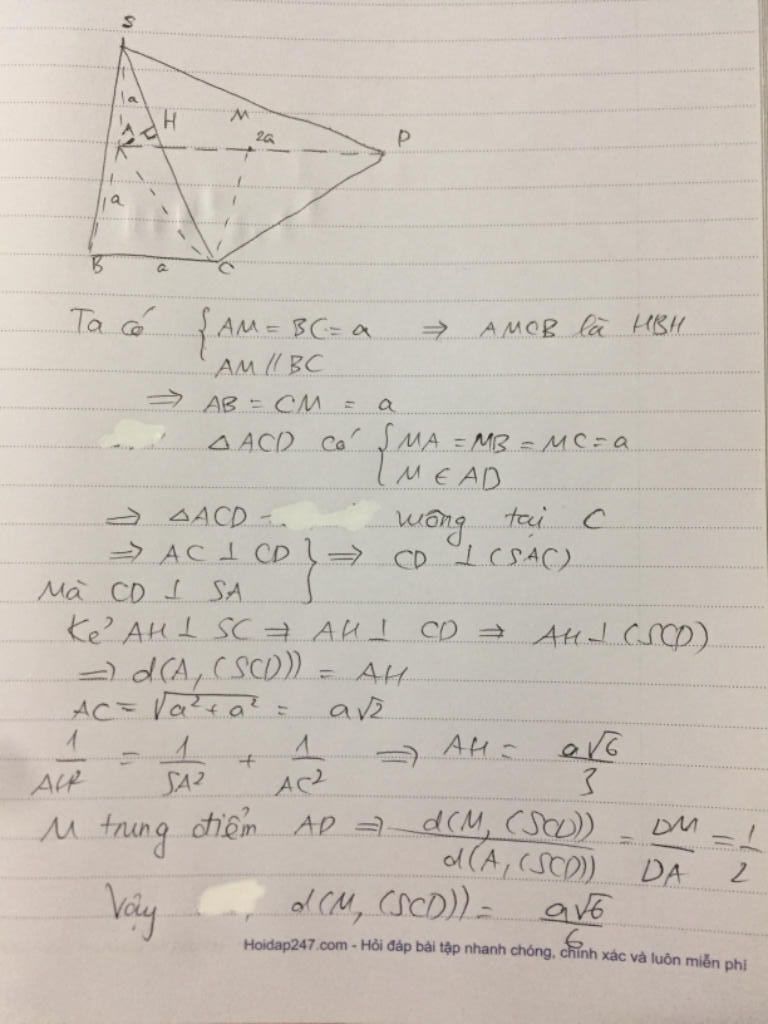 S
a
A H M 2a P
a
B a C
Ta có { AM = BC = a ⇒ AMCB là HBH
AM // BC
⇒ AB = CM = a
△ACD có { MA = MB = MC = a
M ∈ AD
⇒ △ACD vuông tại C
⇒ AC ⊥ CD } ⇒ CD ⊥ (SAC)
Mà CD ⊥ SA
Kẻ AH ⊥ SC ⇒ AH ⊥ CD ⇒ AH ⊥ (SCD)
⇒ d(A, (SCD)) = AH
AC = √(a² + a²) = a√2
1/AH² = 1/SA² + 1/AC² ⇒ AH = a√6/3
M trung điểm AD ⇒ d(M, (SCD))/d(A, (SCD)) = DM/DA = 1/2
Vậy d(M, (SCD)) = a√6/6
Hoidap247.com - Hỏi đáp bài tập nhanh chóng, chính xác và luôn miễn phí